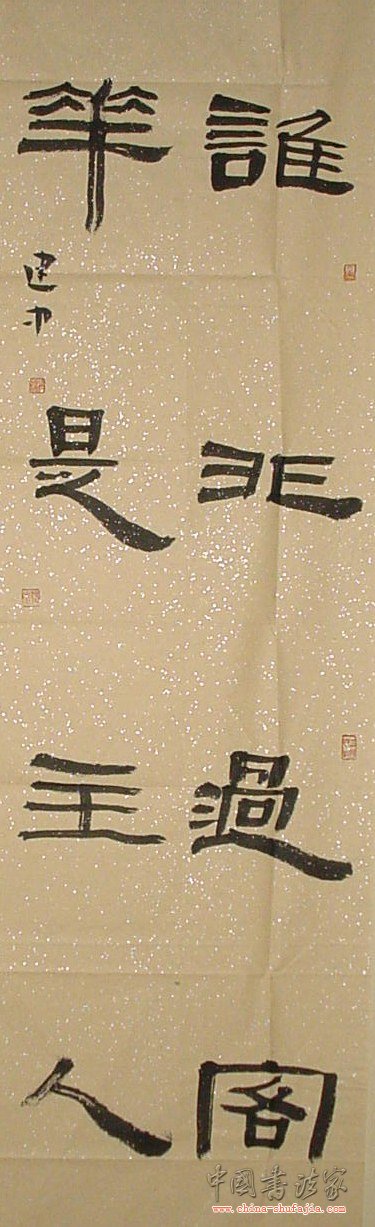 誰非過客
華是主人
中國書法家
www.china-shufajia.com